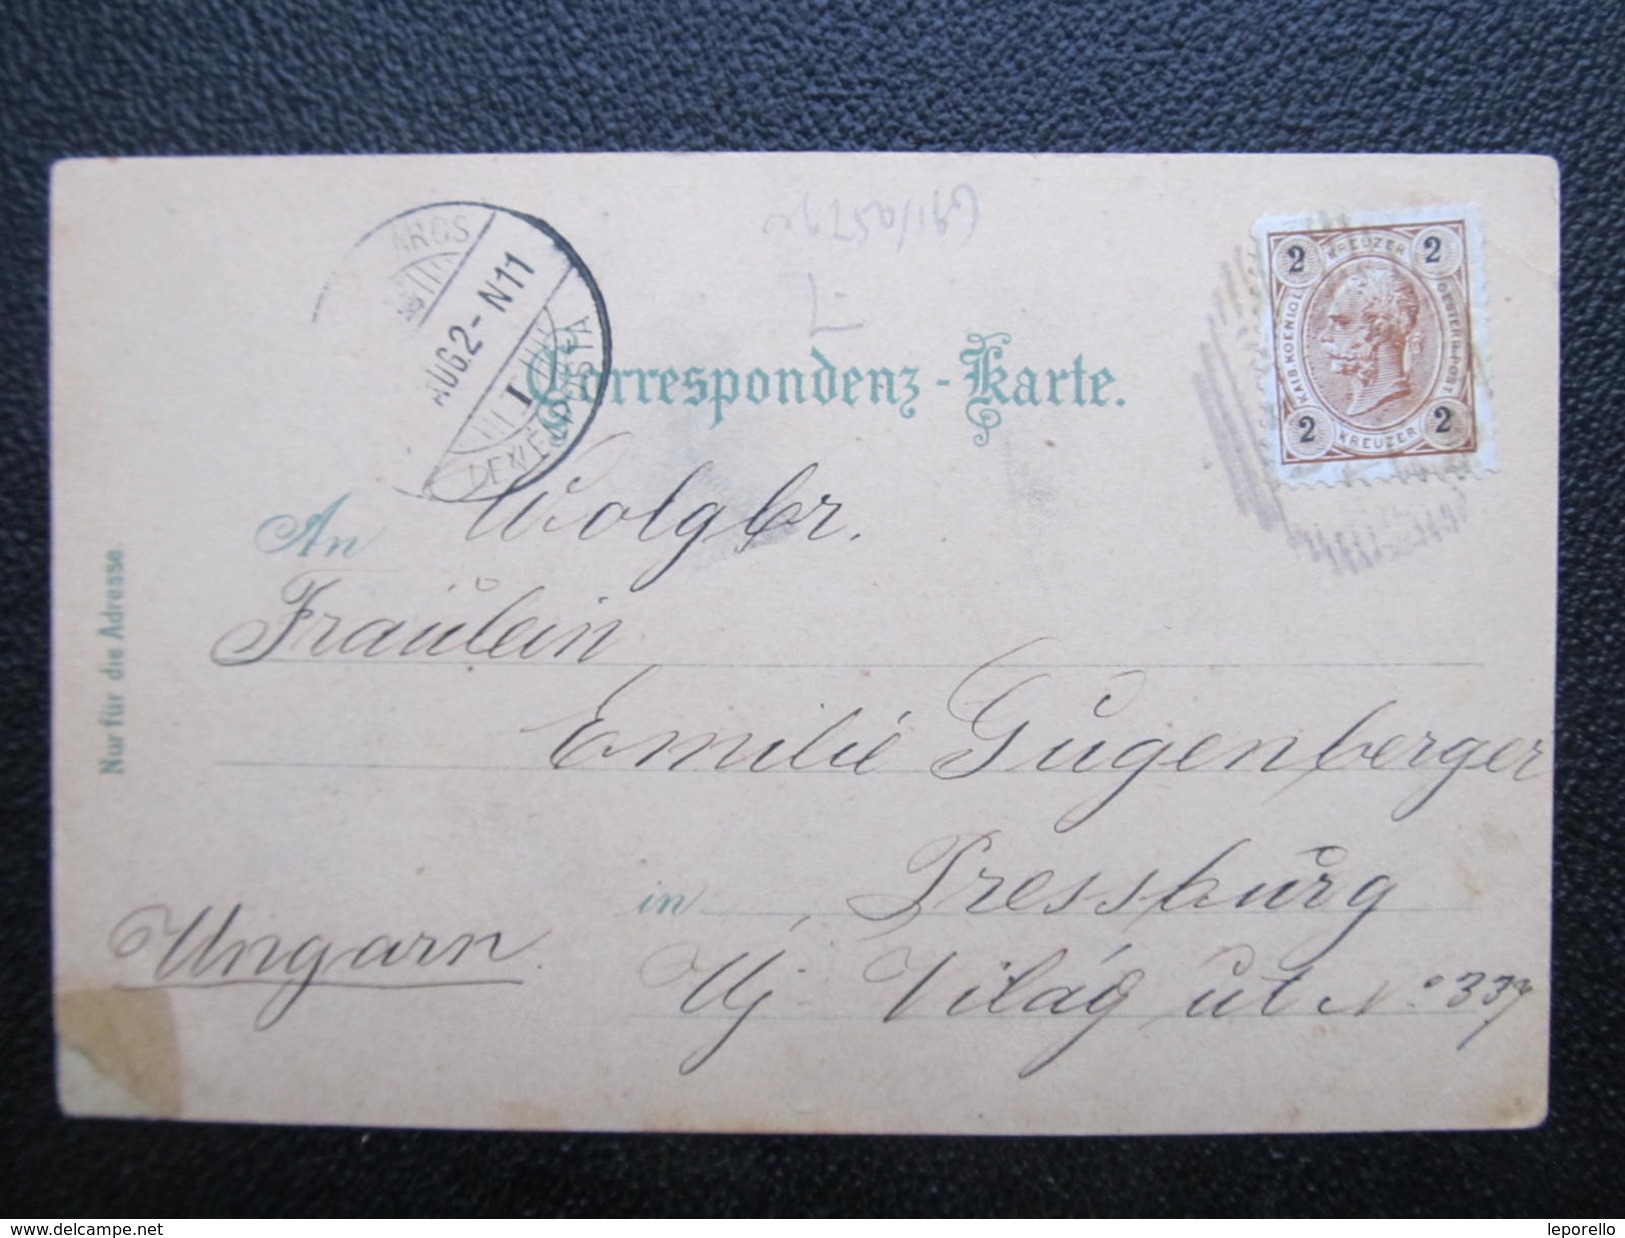 2 KREUZER 2
KAIS. KOENIGL. OESTERR. POST
2 KREUZER 2
AUG. 2 - N11
I
Correspondenz-Karte.
An Wolgbr.
Fräulein
Emilie Gugenberger
in Pressburg
Ungarn.
Uj Világ út No 337
Nur für die Adresse.
www.delcampe.net
leporello